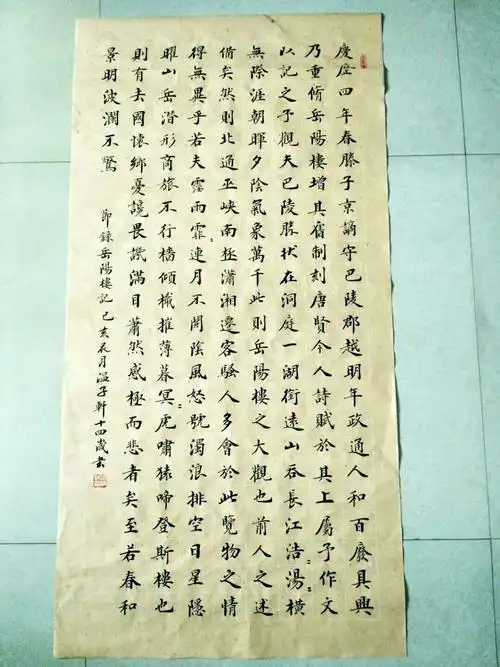 慶歷四年春滕子京謫守巴陵郡越明年政通人和百廢具興
乃重脩岳陽樓增其舊制刻唐賢今人詩賦於其上屬予作文
以記之予觀夫巴陵勝狀在洞庭一湖銜遠山吞長江浩〻湯〻橫
無除涯朝暉夕陰氣象萬千此則岳陽樓之大觀也前人之述
備矣然則北通巫峽南極瀟湘遷客騷人多會於此覽物之情
得無異乎若夫霪雨霏〻連月不開陰風怒號濁浪排空日星隱
曜山岳潛形商旅不行檣傾檝摧薄暮冥〻虎嘯猿啼登斯樓也
則有去國懷鄉憂讒畏譏滿目蕭然感極而悲者矣至若春和
景明波瀾不驚
節錄岳陽樓記己亥月温子軒十四歲書